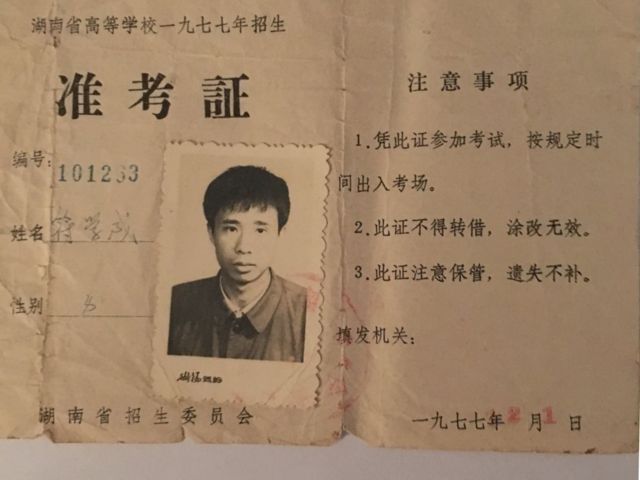 湖南省高等学校一九七七年招生
准考証
编号:101263
姓名 学成
性别
湖南省招生委员会
注意事项
1.凭此证参加考试，按规定时
间出入考场。
2.此证不得转借，涂改无效。
3.此证注意保管，遗失不补。
填发机关：
一九七七年 2月1日